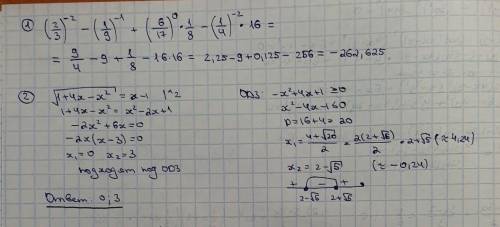 ① (2/3)^-2 - (1/9)^-1 + (6/17)^0 · 1/8 - (1/4)^-2 · 16 =
= 9/4 - 9 + 1/8 - 16·16 = 2,25 - 9 + 0,125 - 256 = -262,625
② √(1+4x-x²) = x-1 |^2
1+4x-x² = x²-2x+1
-2x²+6x=0
-2x(x-3)=0
x₁=0 x₂=3
подходят под ОДЗ
Ответ: 0,3
ОДЗ: -x²+4x+1 ≥0
x²-4x-1≤0
D=16+4=20
x₁ = (4+√20)/2 = 2(2+√5)/2 = 2+√5 (≈4,24)
x₂ = 2-√5 (≈ -0,24)
+ - +
2-√5 2+√5